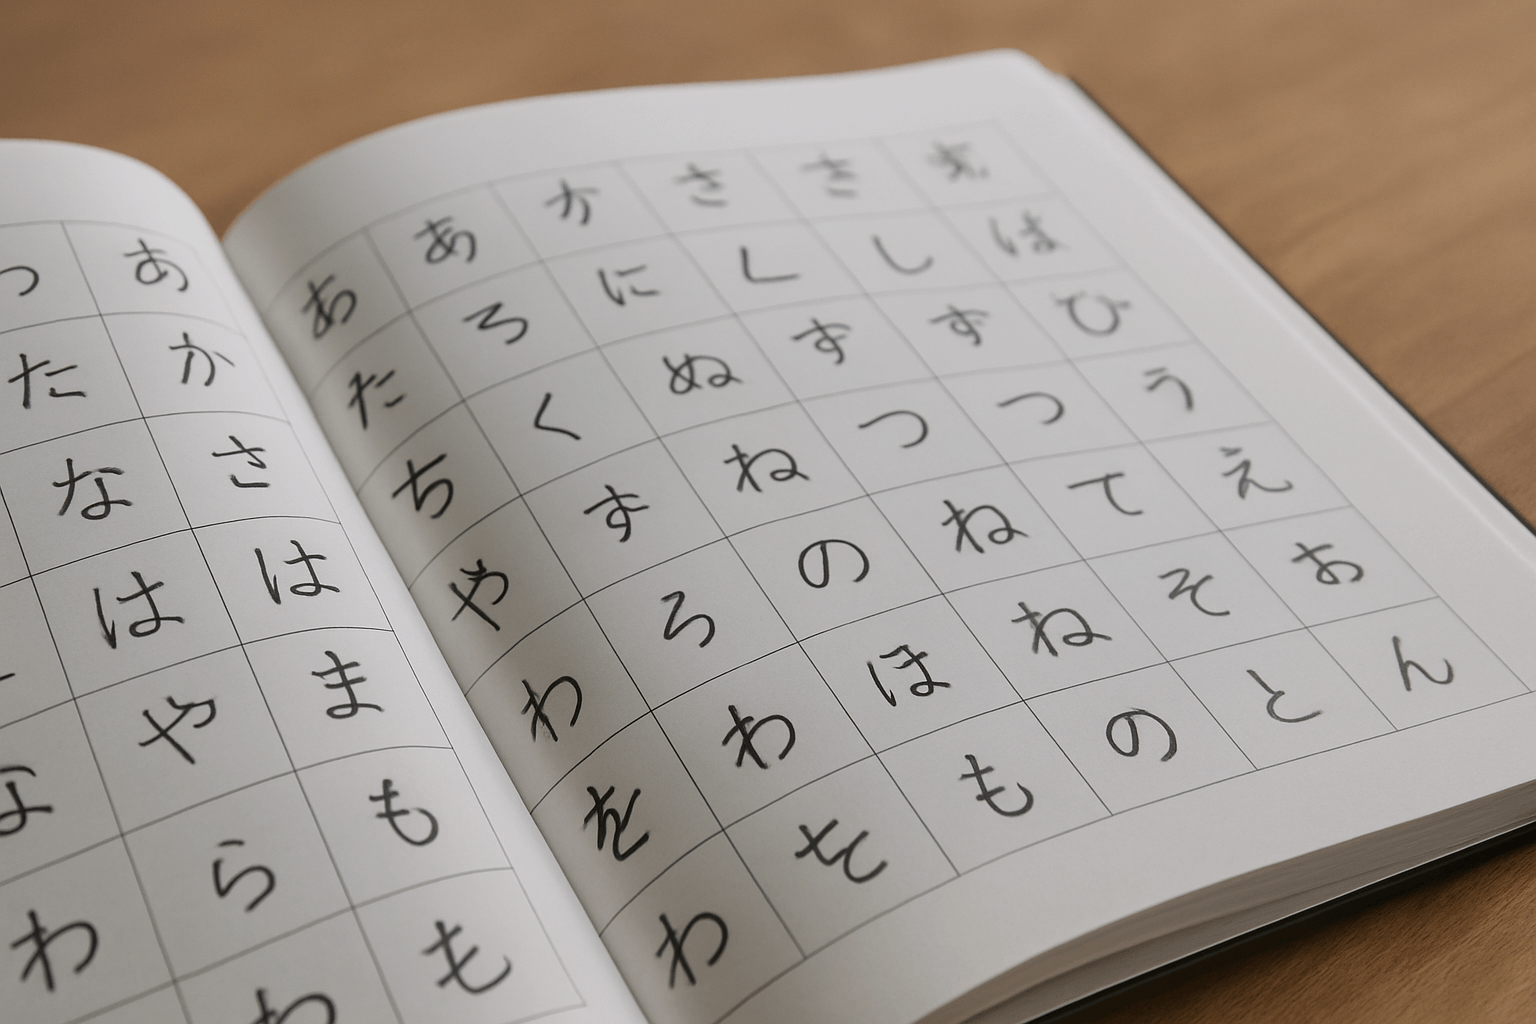 あ
た か
な さ
は は
や ま
わ ら も
も
あ あ か さ さ
た ろ に し は
ち く ぬ す す ひ
や す ね つ つ う
わ ろ の ね て え
を わ ほ ね そ お
わ も の と ん